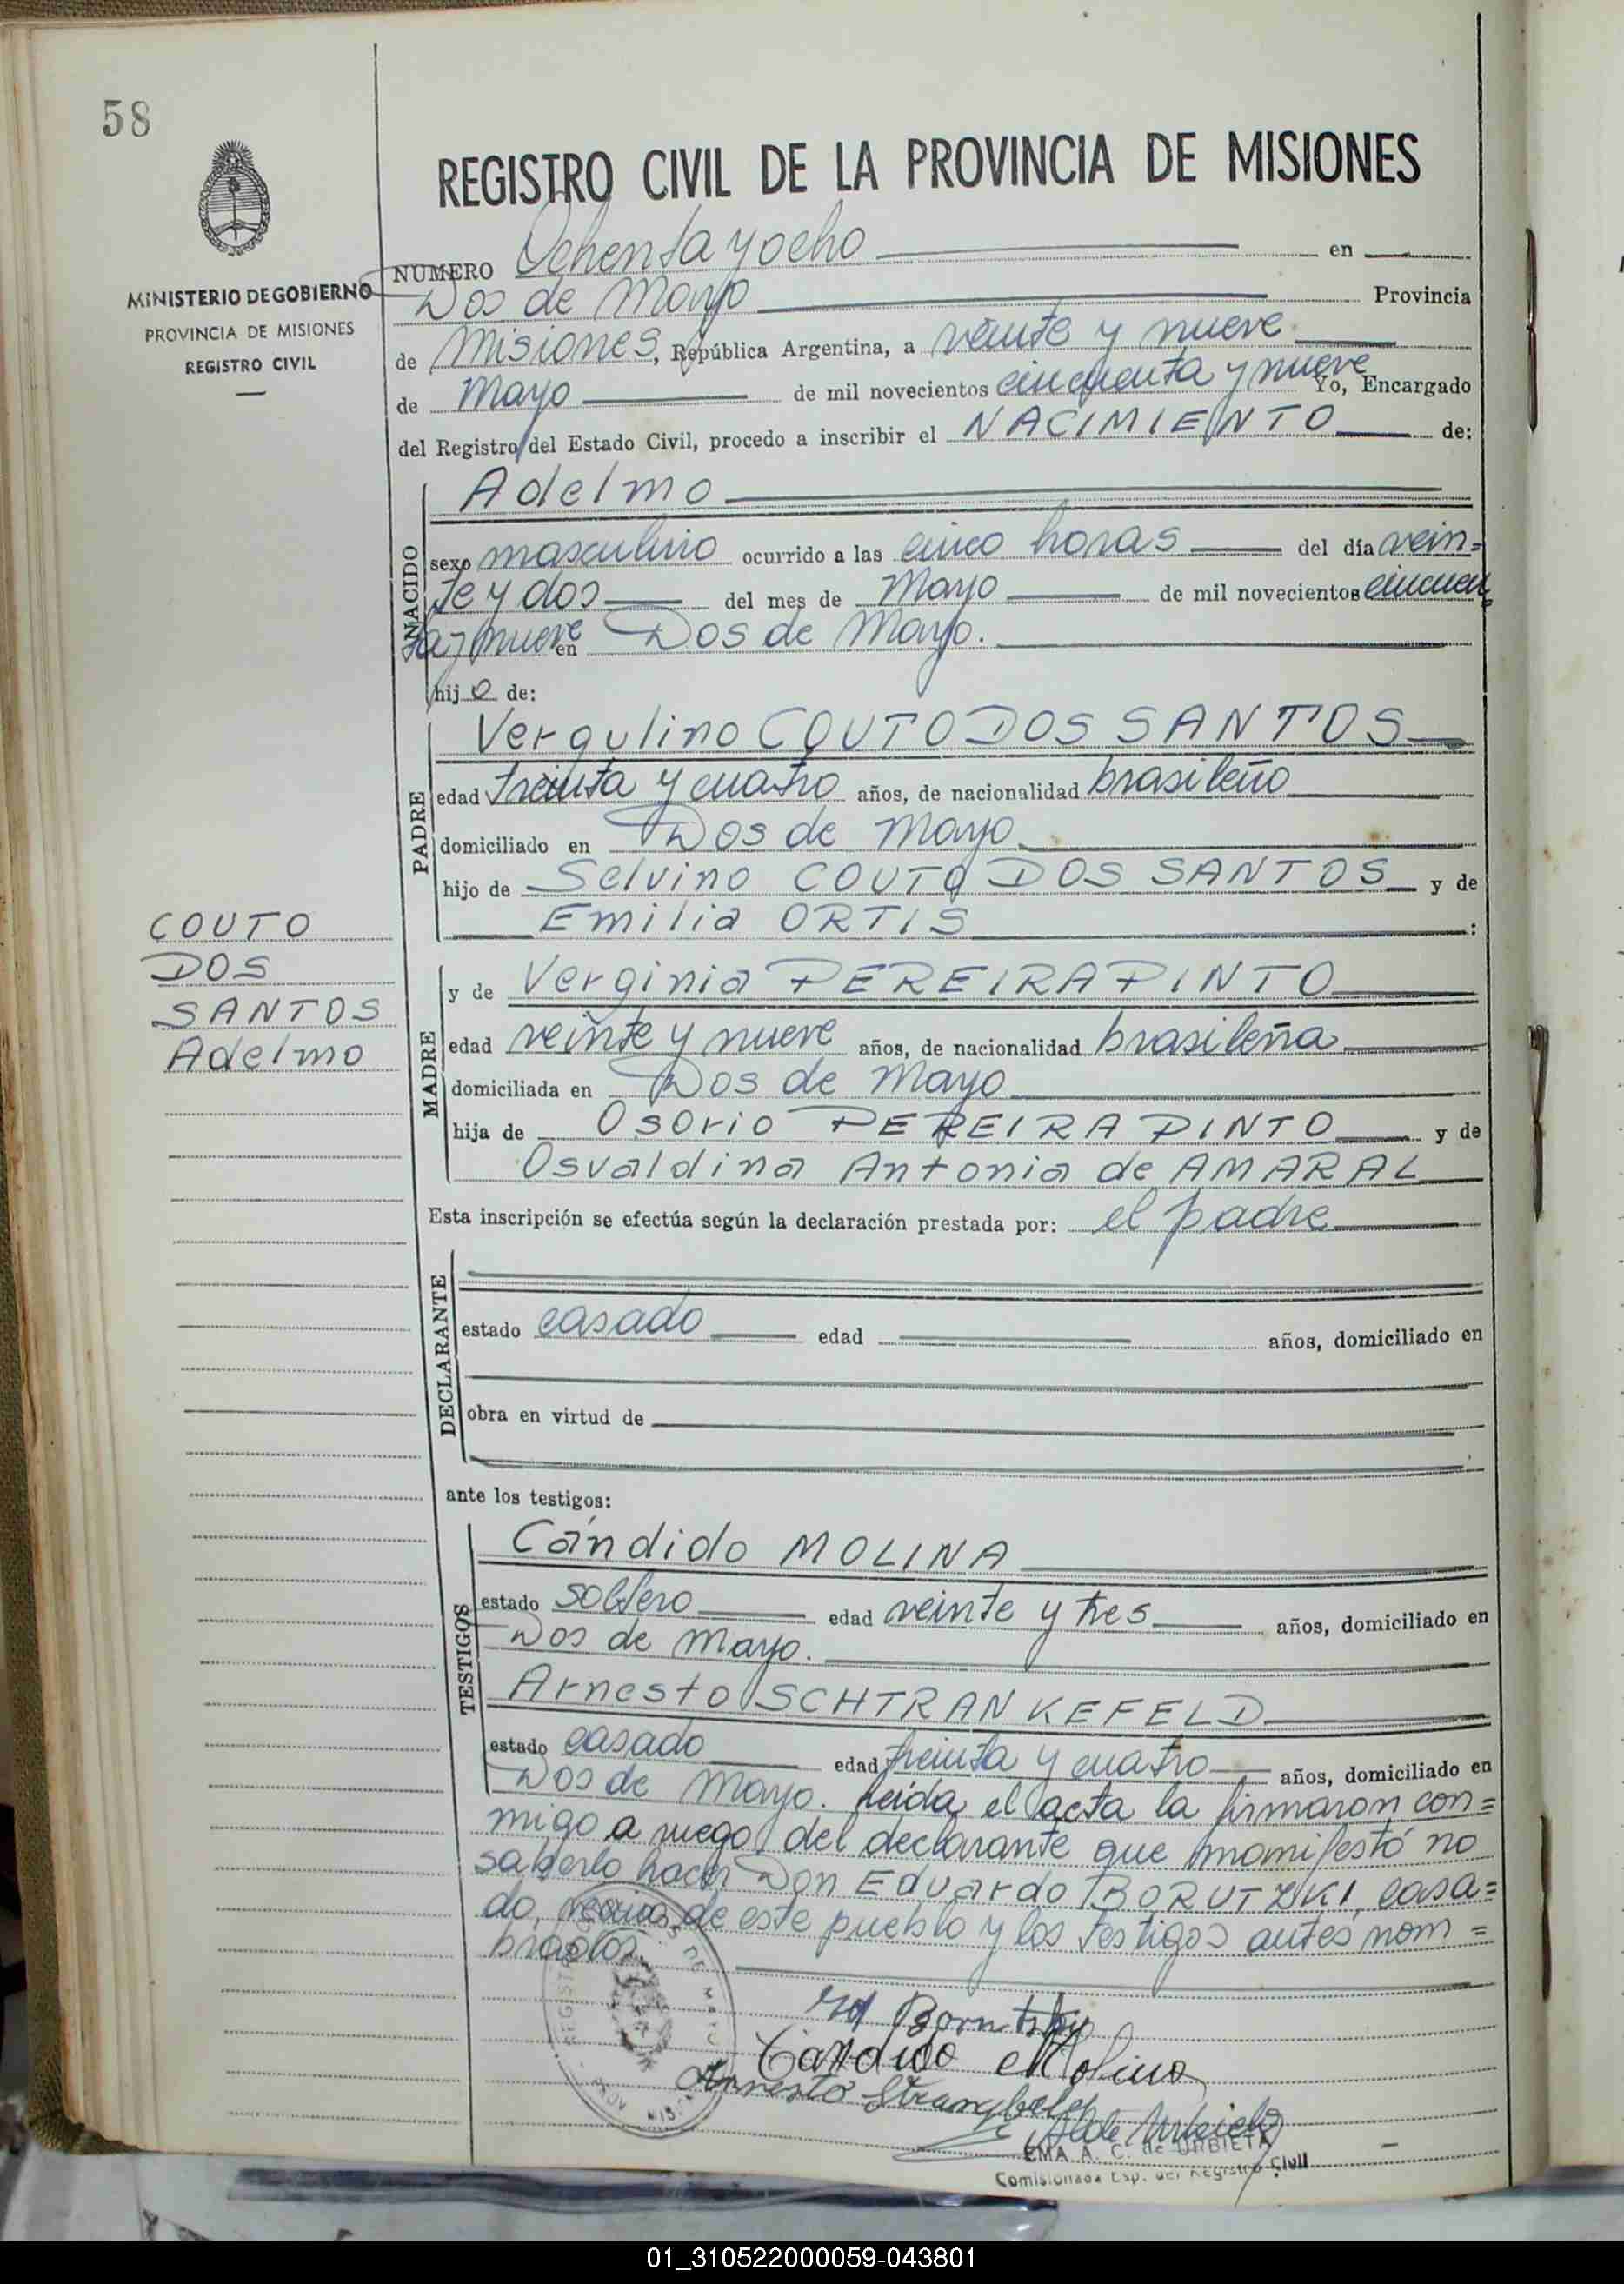 58
REGISTRO CIVIL DE LA PROVINCIA DE MISIONES
MINISTERIO DE GOBIERNO
PROVINCIA DE MISIONES
REGISTRO CIVIL
NUMERO Ochenta y ocho en
Dos de Mayo Provincia
de Misiones, República Argentina, a veinte y nueve
de Mayo de mil novecientos cincuenta y nueve Yo, Encargado
del Registro del Estado Civil, procedo a inscribir el NACIMIENTO de:
NACIDO
Adelmo
sexo masculino ocurrido a las cinco horas del día vein=
te y dos del mes de Mayo de mil novecientos cincuen
ta y nueve en Dos de Mayo.
hijo de:
PADRE
Vergulino COUTO DOS SANTOS
edad treinta y cuatro años, de nacionalidad brasileño
domiciliado en Dos de Mayo
hijo de Selvino COUTO DOS SANTOS y de
Emilia ORTIS :
COUTO
DOS
SANTOS
Adelmo
MADRE
y de Verginia PEREIRA PINTO
edad veinte y nueve años, de nacionalidad brasileña
domiciliada en Dos de Mayo
hija de Osorio PEREIRA PINTO y de
Osvaldina Antonia de AMARAL
Esta inscripción se efectúa según la declaración prestada por: el padre
DECLARANTE
estado casado edad años, domiciliado en
obra en virtud de
ante los testigos:
TESTIGOS
Cándido MOLINA
estado soltero edad veinte y tres años, domiciliado en
Dos de Mayo.
Arnesto SCHTRANKEFELD
estado casado edad treinta y cuatro años, domiciliado en
Dos de Mayo. Leida el acta la firmaron con=
migo a ruego del declarante que manifestó no
saberlo hacer Don Eduardo BORUTZKI, casa=
do, vecino de este pueblo y los testigos antes nom=
brados.
Candido Molina
Arnesto
EMA A. C. de URBIETA
Comisionada Esp. del Registro Civil
01_310522000059-043801